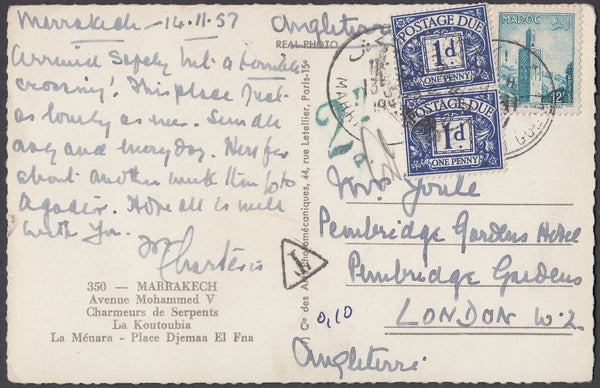 Marrakech - 14.11.57
Arrived Safely but a terrible
crossing! This place just
as lovely as ever. Sun all
day and everyday. Here for
about another week then to
Agadir. Hope all is well
with you.
Charteris
350 — MARRAKECH
Avenue Mohammed V
Charmeurs de Serpents
La Koutoubia
La Ménara - Place Djemaa El Fna
Angleterre
REAL PHOTO
Cie des Arts Photomécaniques, 44, rue Letellier, Paris-15e
POSTAGE DUE
1d.
ONE PENNY
POSTAGE DUE
1d.
ONE PENNY
MAROC
12F
2d
T
0,10
Mrs Youle
Pembridge Gardens Hotel
Pembridge Gardens
LONDON W.2.
Angleterre